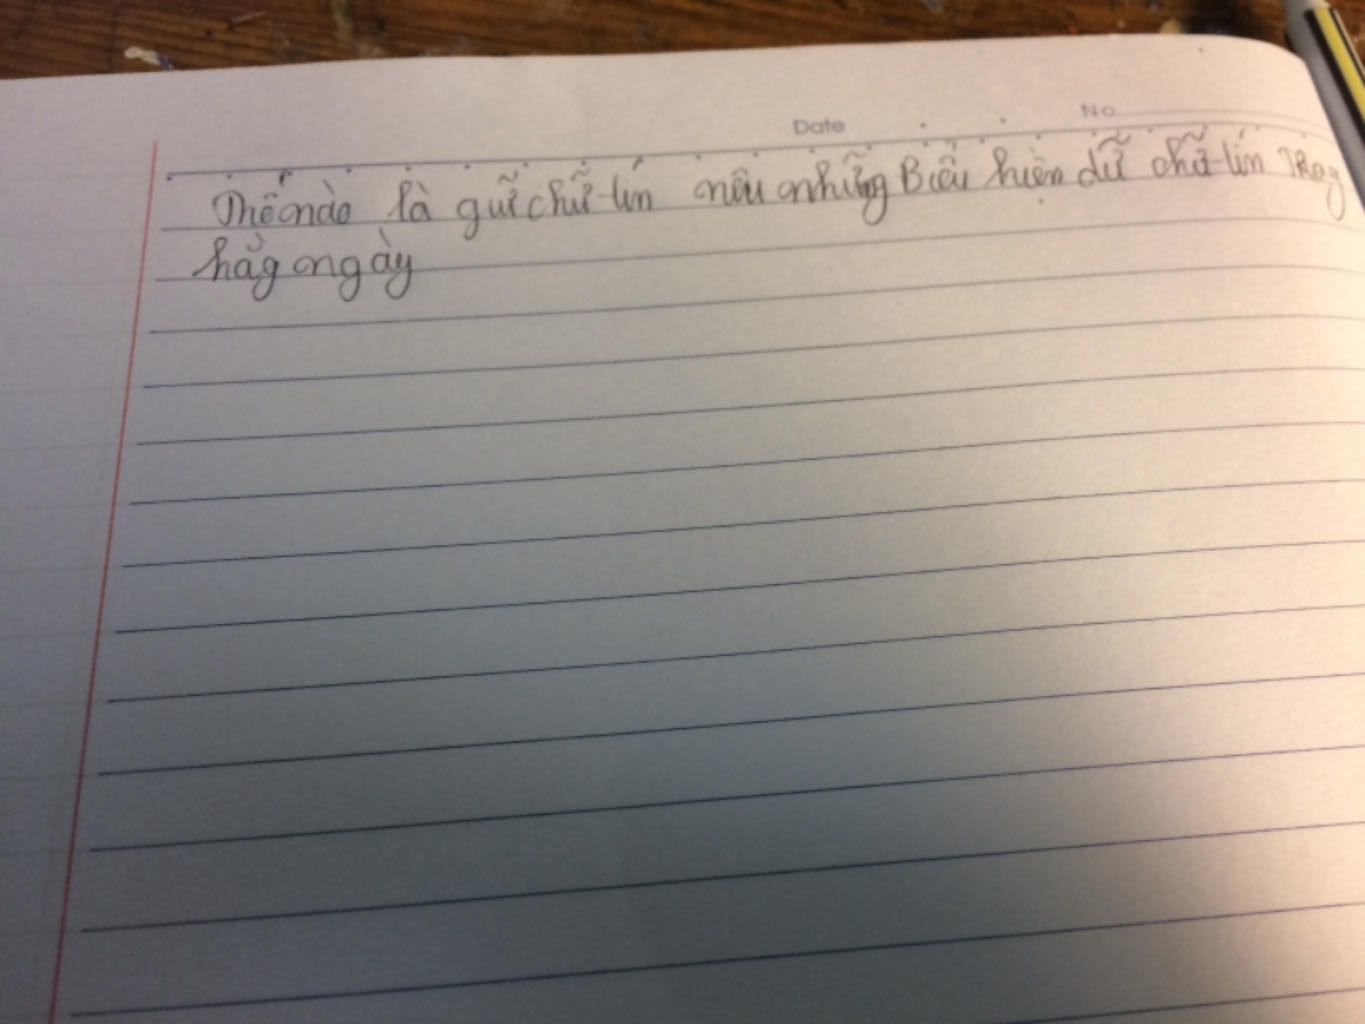 Date No
Thế nào là gữi chữ tín nêu những Biểu hiện dữ chữ tín
hằg ngày